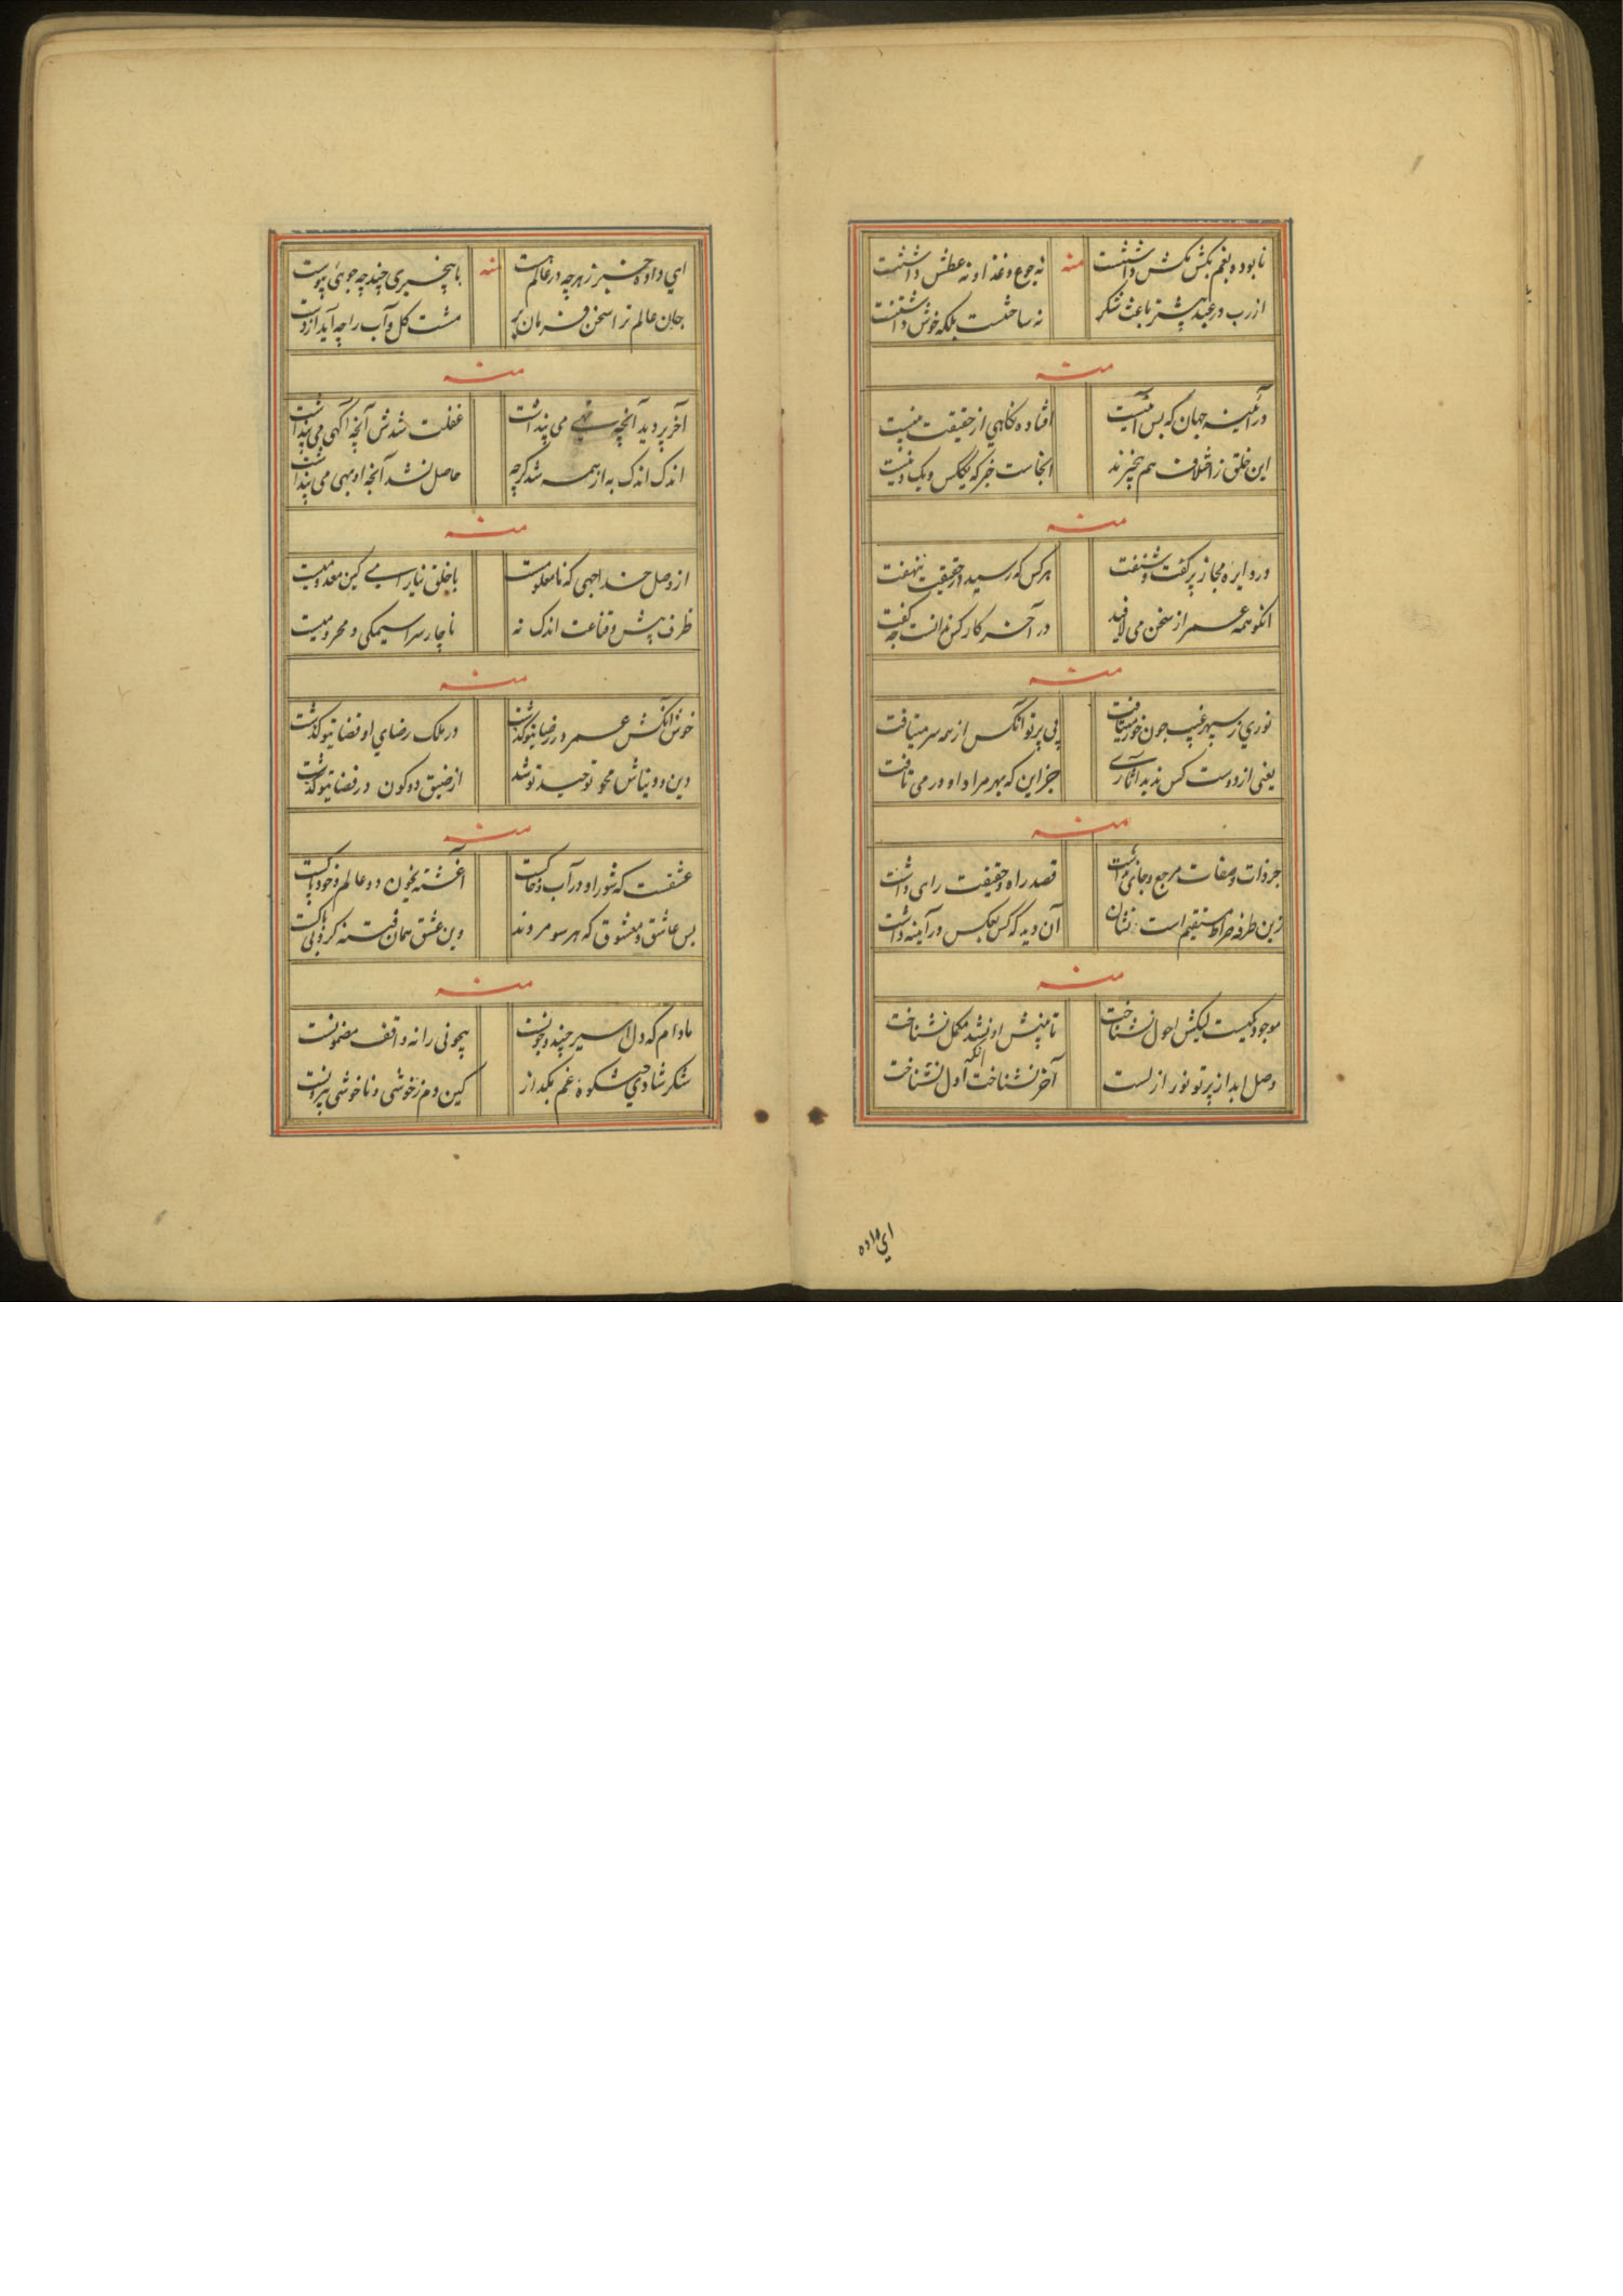 نابوده بغم بکش مکش داشتنت
منه
نه جوع و غذا و نه عطش داشتنت
از رب در عبد بیشتر باعث شکر
نه ساختنست بلکه خوش داشتنت
منه
در آینه جهان که بس
افتاده نگاهی از حقیقت
این خلق ز اختلاف هم بیخبرند
اینجاست خبر که یککس و یک
منه
در دایره مجاز پر گفت و شنفت
هر کس که رسید در حقیقت بنهفت
انکو همه عمر از سخن می لافید
در آخر کار کس ندانست چه گفت
منه
نوری ز سپهر غیب چون خور میتافت
پی پرتو آنکس از همه سر میتافت
یعنی از دوست کس ندید آثاری
جز این که بهر مراد او در می تافت
منه
جز ذات و صفات مرجع و جای نداشت
قصد راه حقیقت رای داشت
زین طرفه صراط مستقیم است نشان
آن دید که کس بعکس در آینه داشت
منه
موجود یکیست لیکش احول نشناخت
تا بینش او نشد مکمل نشناخت
وصل ابد از پرتو نور ازلست
آخر نشناخت آنکه اول نشناخت
ای داده
ای داده خبر ز هرچه در عالم هست
منه
با بیخبری چند چه جوئی پیوست
جان عالم ترا سخن فرمان بر
مشت گل و آب را چه آید از دست
منه
آخر بر دید آنچه تهی می پنداشت
غفلت شدش آنچه آگهی می پنداشت
اندک اندک به از همه شد گرچه
حاصل نشد آنچه او بهی می پنداشت
منه
از وصل خدا جهی که نامعلومیت
با خلق نیارامی کین معدومیت
ظرف بیش و قناعت اندک نه
ناچار سراسیمگی و محرومیت
منه
خوش آنکش عمر در رضای تو گذشت
در ملک رضای او قضای تو گذشت
دین و دنیاش محو توحید تو شد
از ضیق دو کون در فضای تو گذشت
منه
عشقست که شور او در آب و خاکست
آغشته بخون دو عالم و خود پاکست
بس عاشق و معشوق که هر سو مردند
وین عشق همان فتنه گر و بی باکست
منه
مادام که دل اسیر چند و چونست
بیچونی را نه واقف مضمونست
شکر شادی شکوه غم بگداز
کین دم ز خوشی و ناخوشی بیرونست